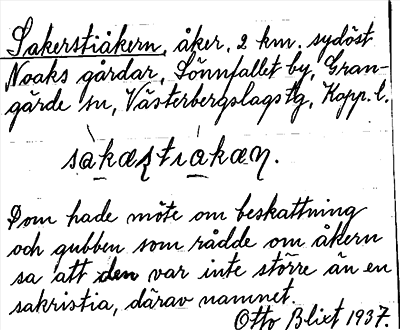 Sakerstiåkern, åker, 2 km. sydöst
Noaks gårdar, Sönnfallet by, Gran-
gärde sn, Västerbergslags tg, Kopp. l.
sàkæʂtıàkæɳ.
Dom hade möte om beskattning
och gubben som rådde om åkern
sa att den var inte större än en
sakristia, därav namnet.
Otto Blixt 1937.